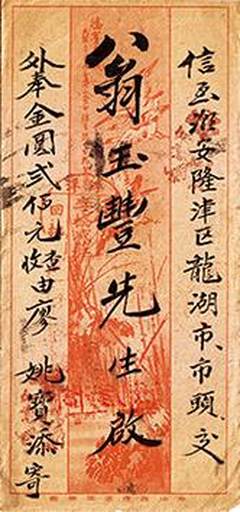 信至潮安隆津区龍湖市、市頭、交
翁玉豐先生啟
外奉金圓弍佰元查收由廖 姚寶添寄